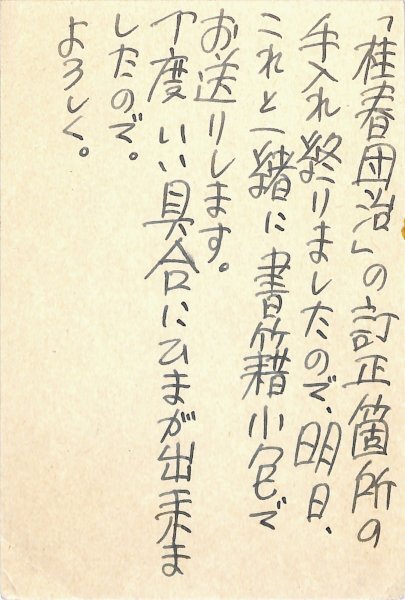 「桂春団治」の訂正箇所の
手入れ終りましたので、明日、
これと一緒に書籍小包で
お送りします。
丁度いい具合にひまが出来ま
したので。
よろしく。